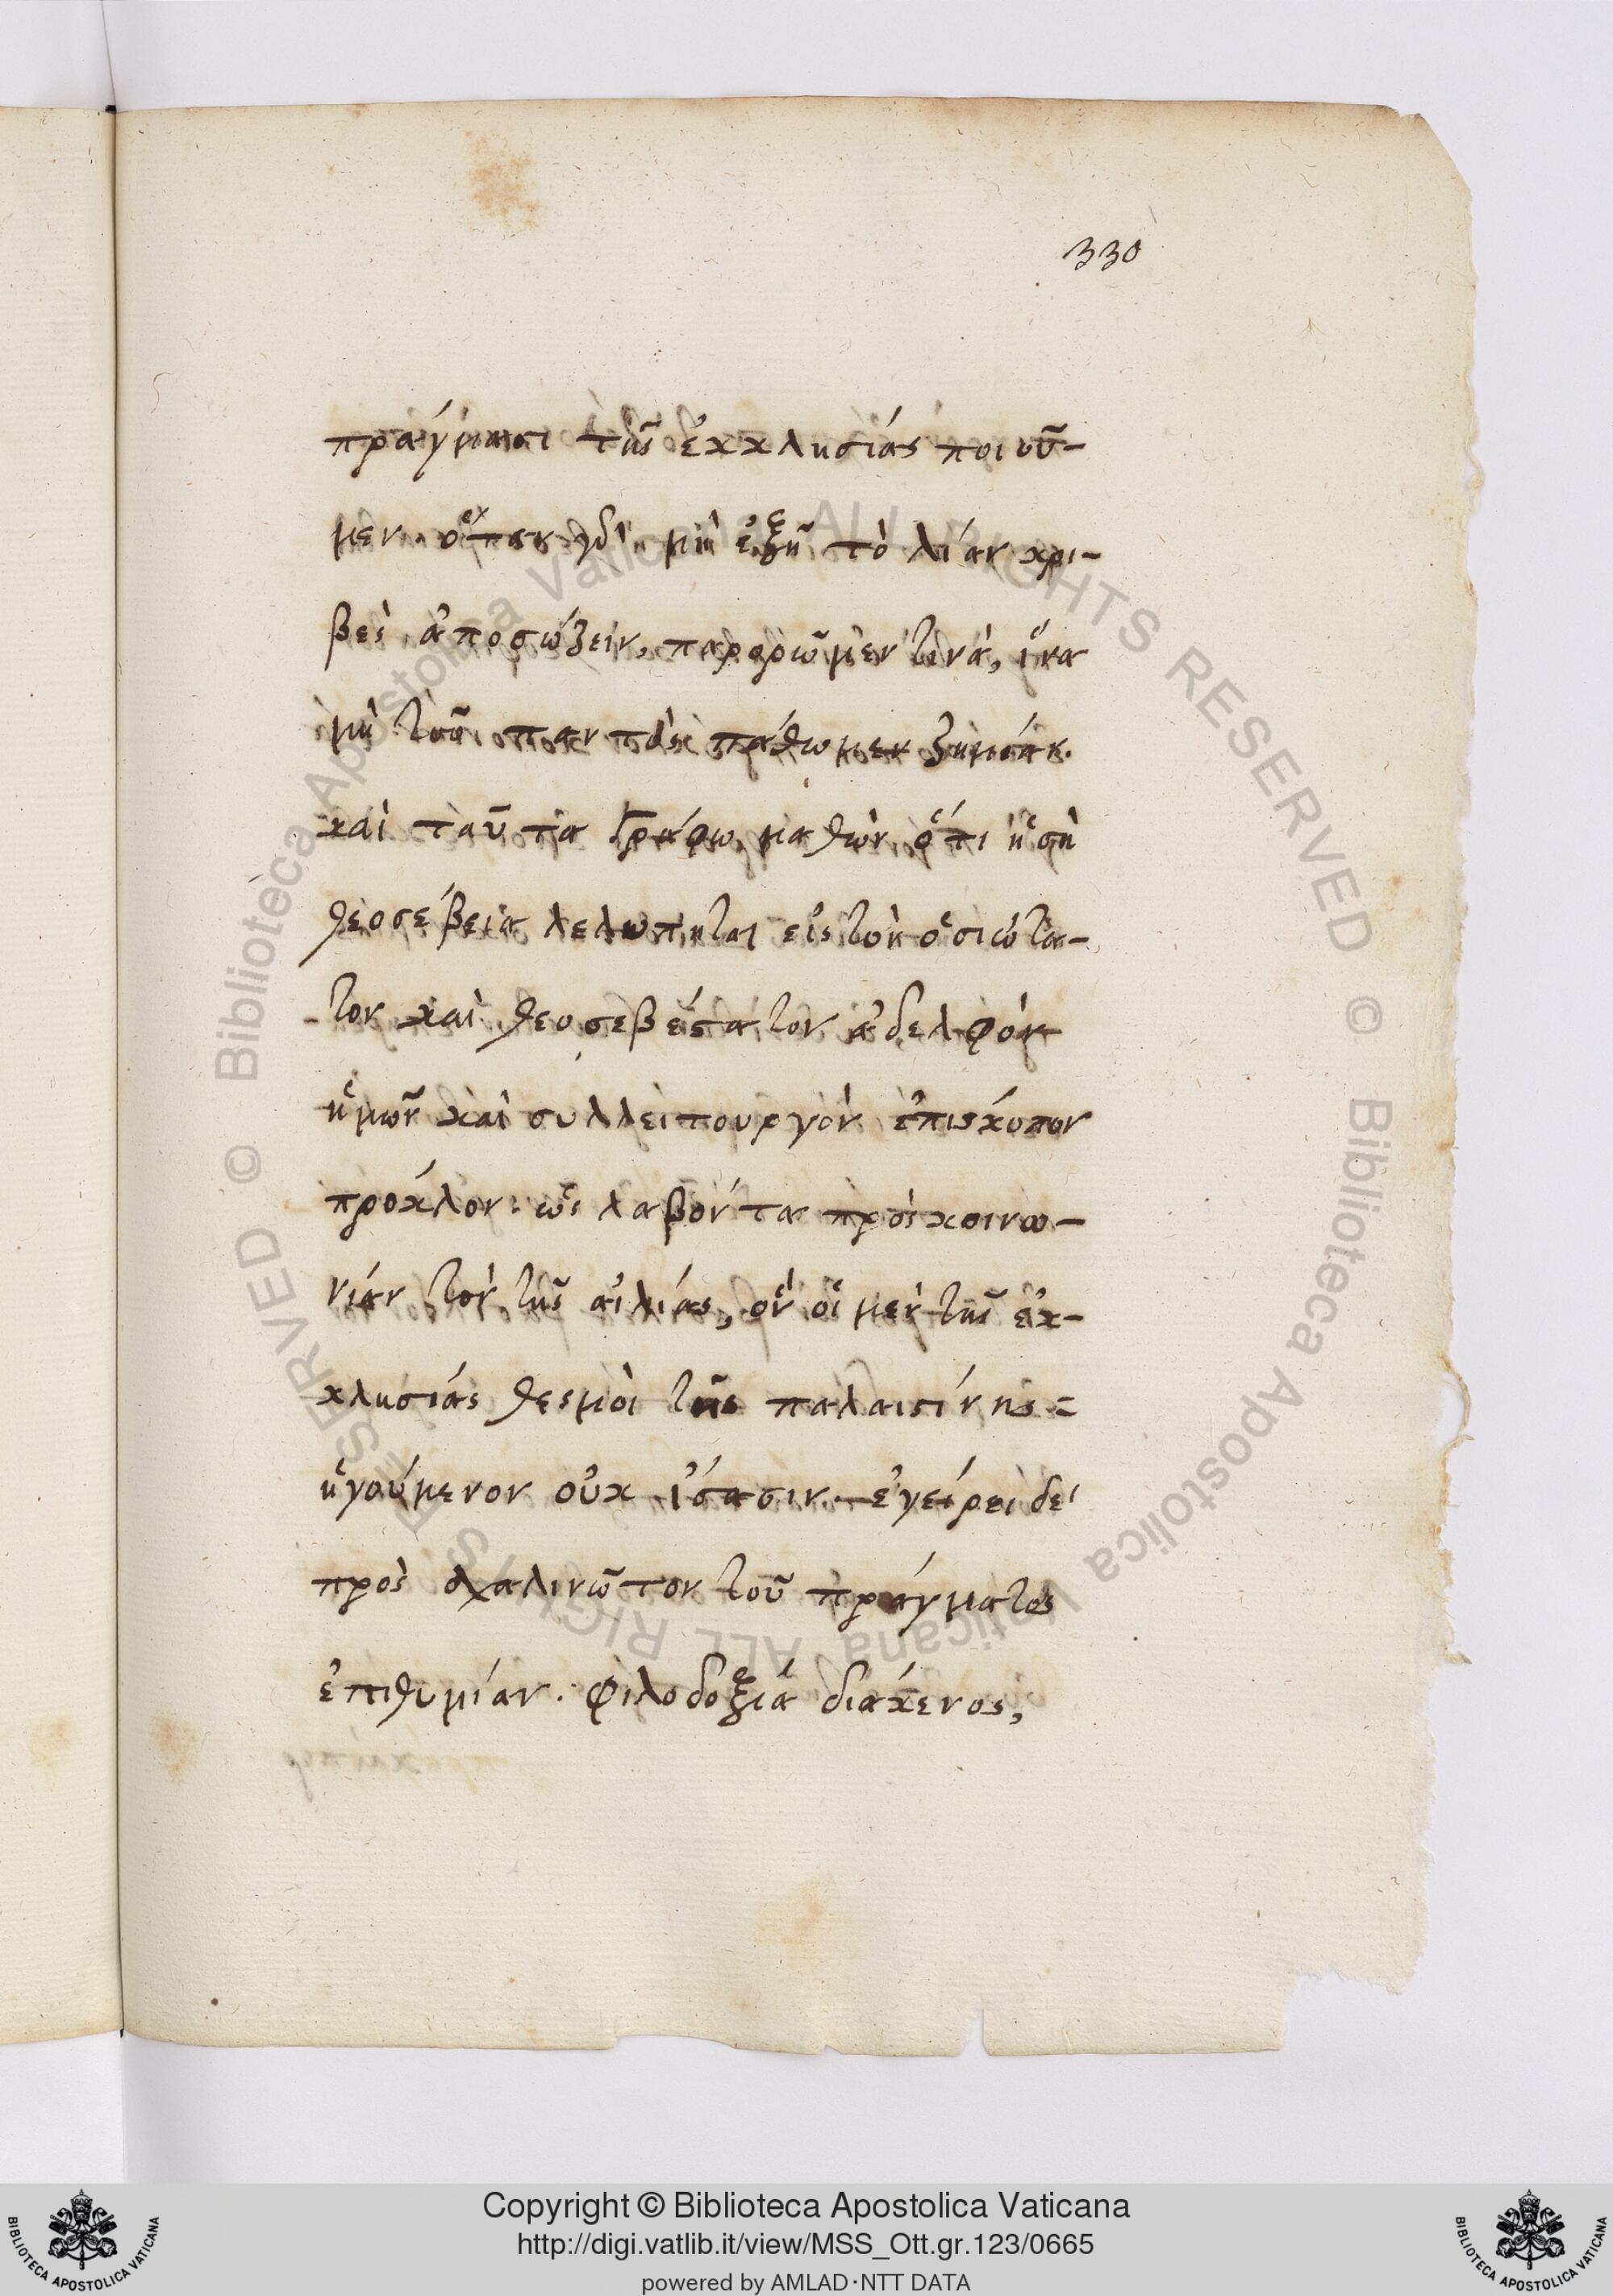 330
πράγμασι τῆς ἐκκλησίας ποιοῦ-
μεν. ὅταν γὰρ μὴ ἐξῇ τὸ λίαν κρι-
βὲς ἀποσώζειν, παρορῶμέν τινα, ἵνα
μὴ τοῦ παντὸς πάθωμεν ζημίαν.
καὶ ταῦτα γράφω μαθὼν, ὅτι ἡ σὴ
θεοσέβεια λελύπηται εἰς τὸν ὁσιώτα-
τον καὶ θεοσεβέστατον ἀδελφὸν
ἡμῶν καὶ συλλειτουργὸν ἐπίσκοπον
πρόκλον. ὡς λαβόντα πρὸς κοινω-
νίαν τὸν τῆς αἰλίας, ὃν οἱ μὲν τῆς ἐκ-
κλησίας θεσμοὶ τῆς παλαιστίνης =
ἡγούμενον οὐκ ἴσασιν. ἐγείρει δὲ
πρὸς ἀχαλινῶτον τοῦ πράγματος
ἐπιθυμίαν. φιλοδοξία διάκενος,
Copyright © Biblioteca Apostolica Vaticana
http://digi.vatlib.it/view/MSS_Ott.gr.123/0665
powered by AMLAD·NTT DATA
BIBLIOTECA APOSTOLICA VATICANA
BIBLIOTECA APOSTOLICA VATICANA
© Biblioteca Apostolica Vaticana ALL RIGHTS RESERVED © Biblioteca Apostolica Vaticana ALL RIGHTS RESERVED